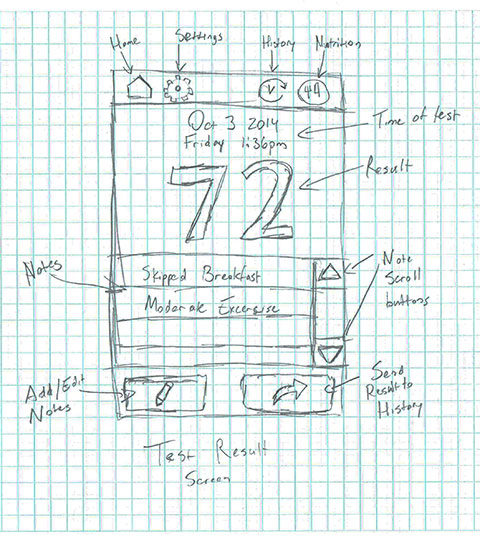 Home
Settings
History
Nutrition
Oct 3 2014
Friday 1:36pm
Time of test
72
Result
Notes
Skipped Breakfast
Moderate Excersise
Note
Scroll
buttons
Add/Edit
Notes
Send
Result to
History
Test Result
Screen